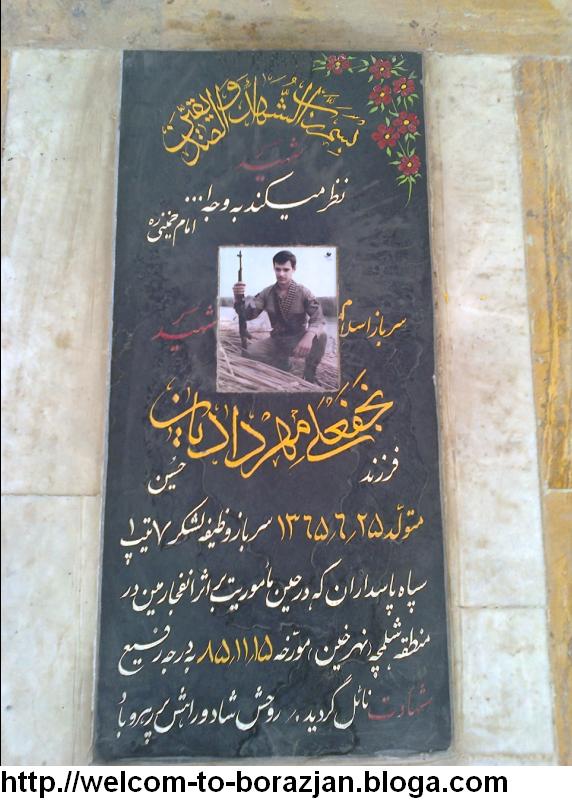 بسم رب الشهداء و الصدیقین
شهید
نظر میکند به وجه ا...
امام خمینی ره
سرباز اسلام شهید
نجفعلی مهردادیان
فرزند حسین
متولد ۱۳۶۵٫۶٫۲۵ سرباز وظیفه لشکر ۷ تیپ ۱
سپاه پاسداران که در حین مأموریت بر اثر انفجار مین در
منطقه شلمچه (نهر خین) مورخه ۸۵٫۱۱٫۱۵ به درجه رفیع
شهادت نائل گردید. روحش شاد و راهش پر رهرو باد
http://welcom-to-borazjan.bloga.com